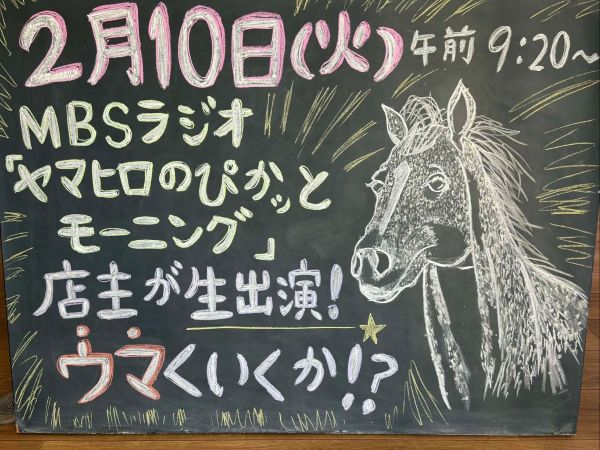 2月10日(火) 午前 9:20〜
MBSラジオ
「ヤマヒロのぴかッと
モーニング」
店主が生出演!
ウマくいくか!?